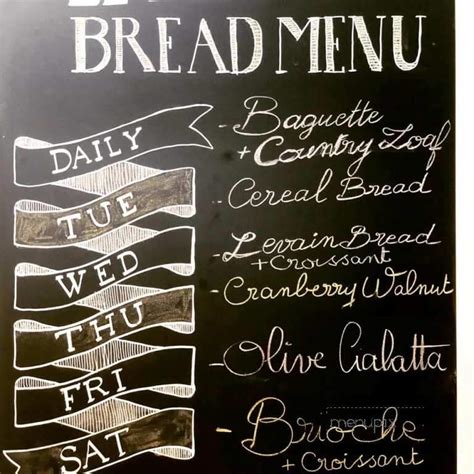 BREAD MENU
DAILY
- Baguette
+ Country Loaf
TUE
- Cereal Bread
WED
- Levain Bread
+ Croissant
THU
- Cranberry Walnut
FRI
- Olive Ciabatta
SAT
- Brioche
+ Croissant
menupix